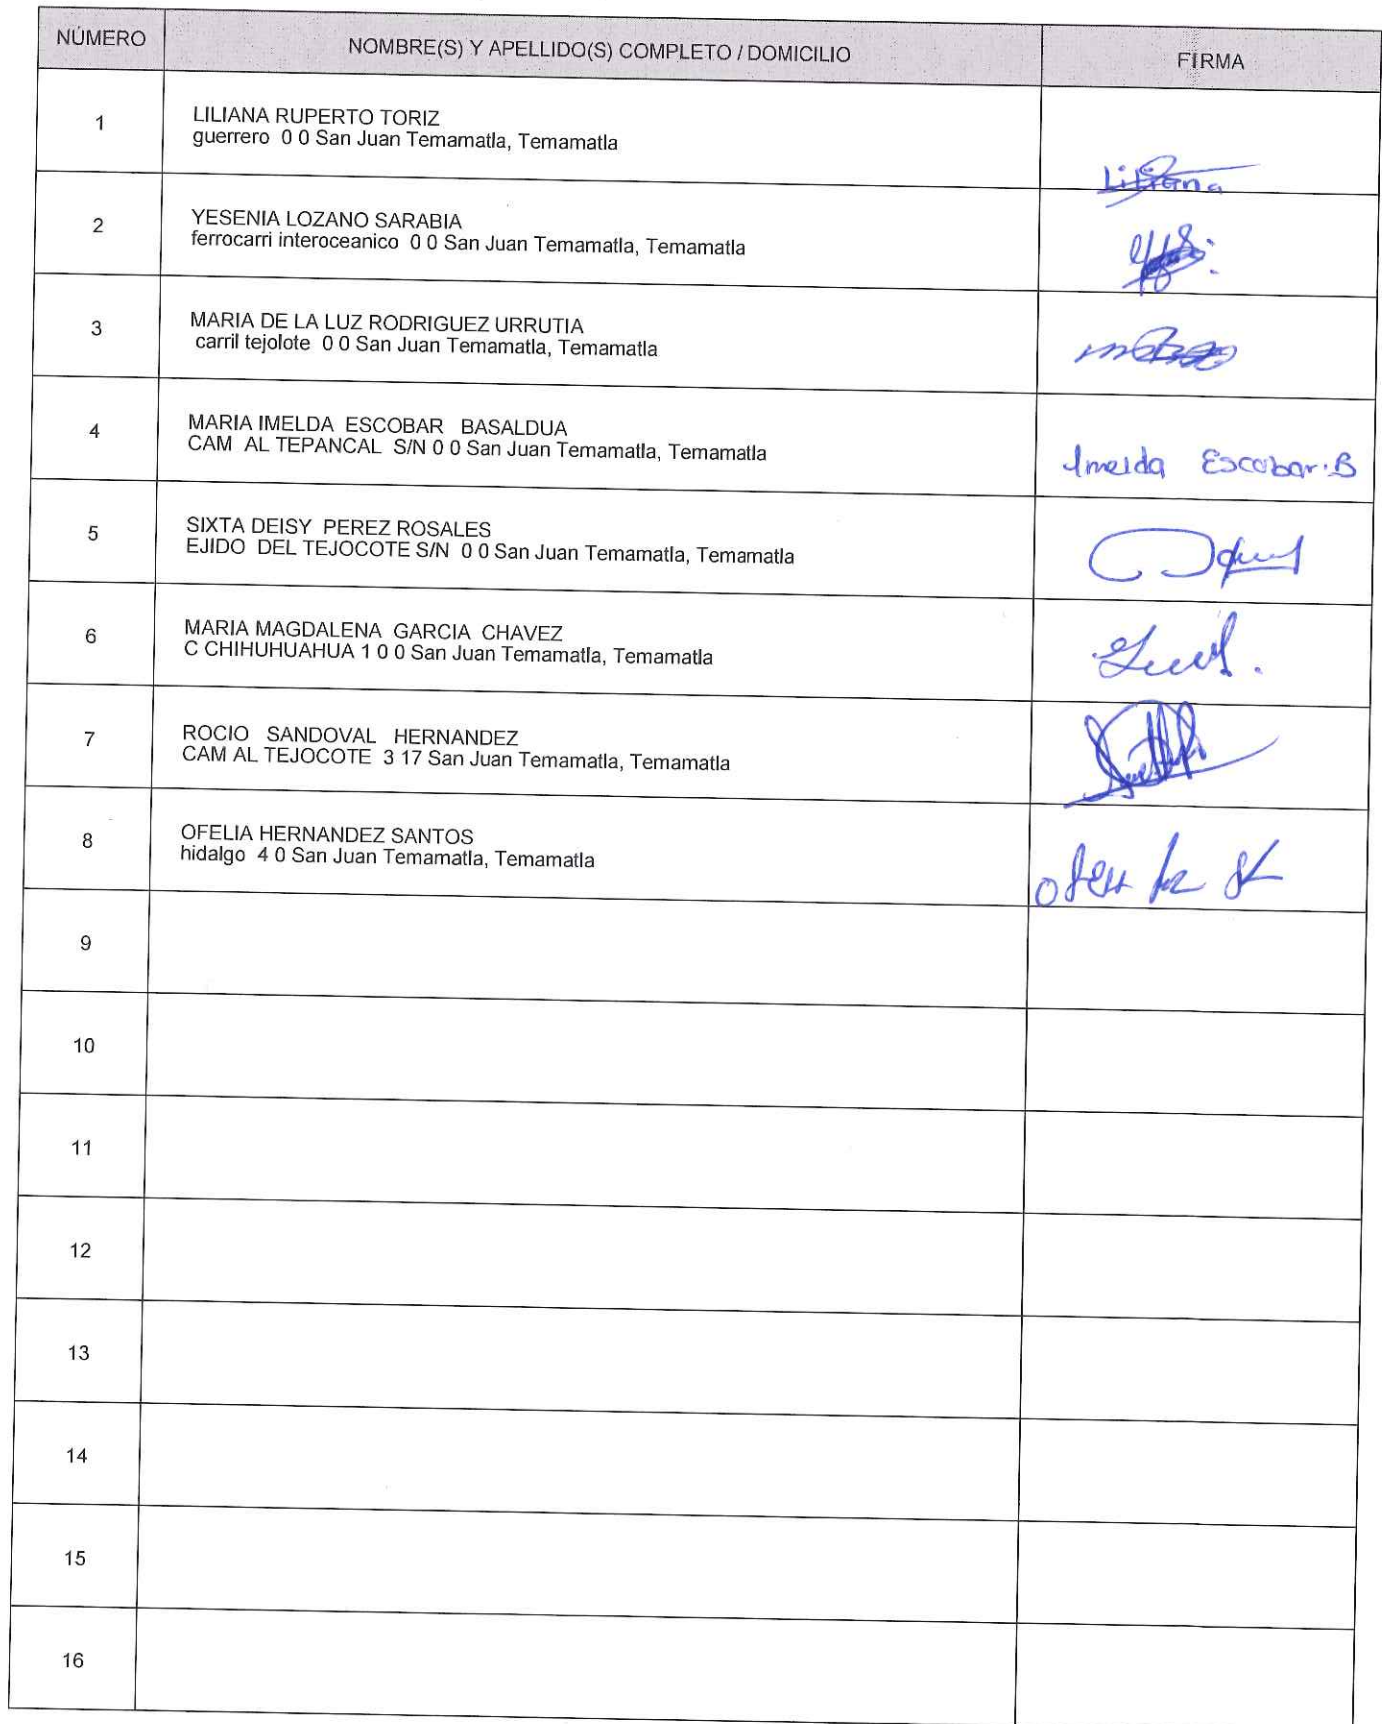 NÚMERO NOMBRE(S) Y APELLIDO(S) COMPLETO / DOMICILIO FIRMA
1 LILIANA RUPERTO TORIZ
guerrero 0 0 San Juan Temamatla, Temamatla
Liliana
2 YESENIA LOZANO SARABIA
ferrocarri interoceanico 0 0 San Juan Temamatla, Temamatla
3 MARIA DE LA LUZ RODRIGUEZ URRUTIA
carril tejolote 0 0 San Juan Temamatla, Temamatla
4 MARIA IMELDA ESCOBAR BASALDUA
CAM AL TEPANCAL S/N 0 0 San Juan Temamatla, Temamatla
Imelda Escobar.B
5 SIXTA DEISY PEREZ ROSALES
EJIDO DEL TEJOCOTE S/N 0 0 San Juan Temamatla, Temamatla
6 MARIA MAGDALENA GARCIA CHAVEZ
C CHIHUHUAHUA 1 0 0 San Juan Temamatla, Temamatla
7 ROCIO SANDOVAL HERNANDEZ
CAM AL TEJOCOTE 3 17 San Juan Temamatla, Temamatla
8 OFELIA HERNANDEZ SANTOS
hidalgo 4 0 San Juan Temamatla, Temamatla
9
10
11
12
13
14
15
16